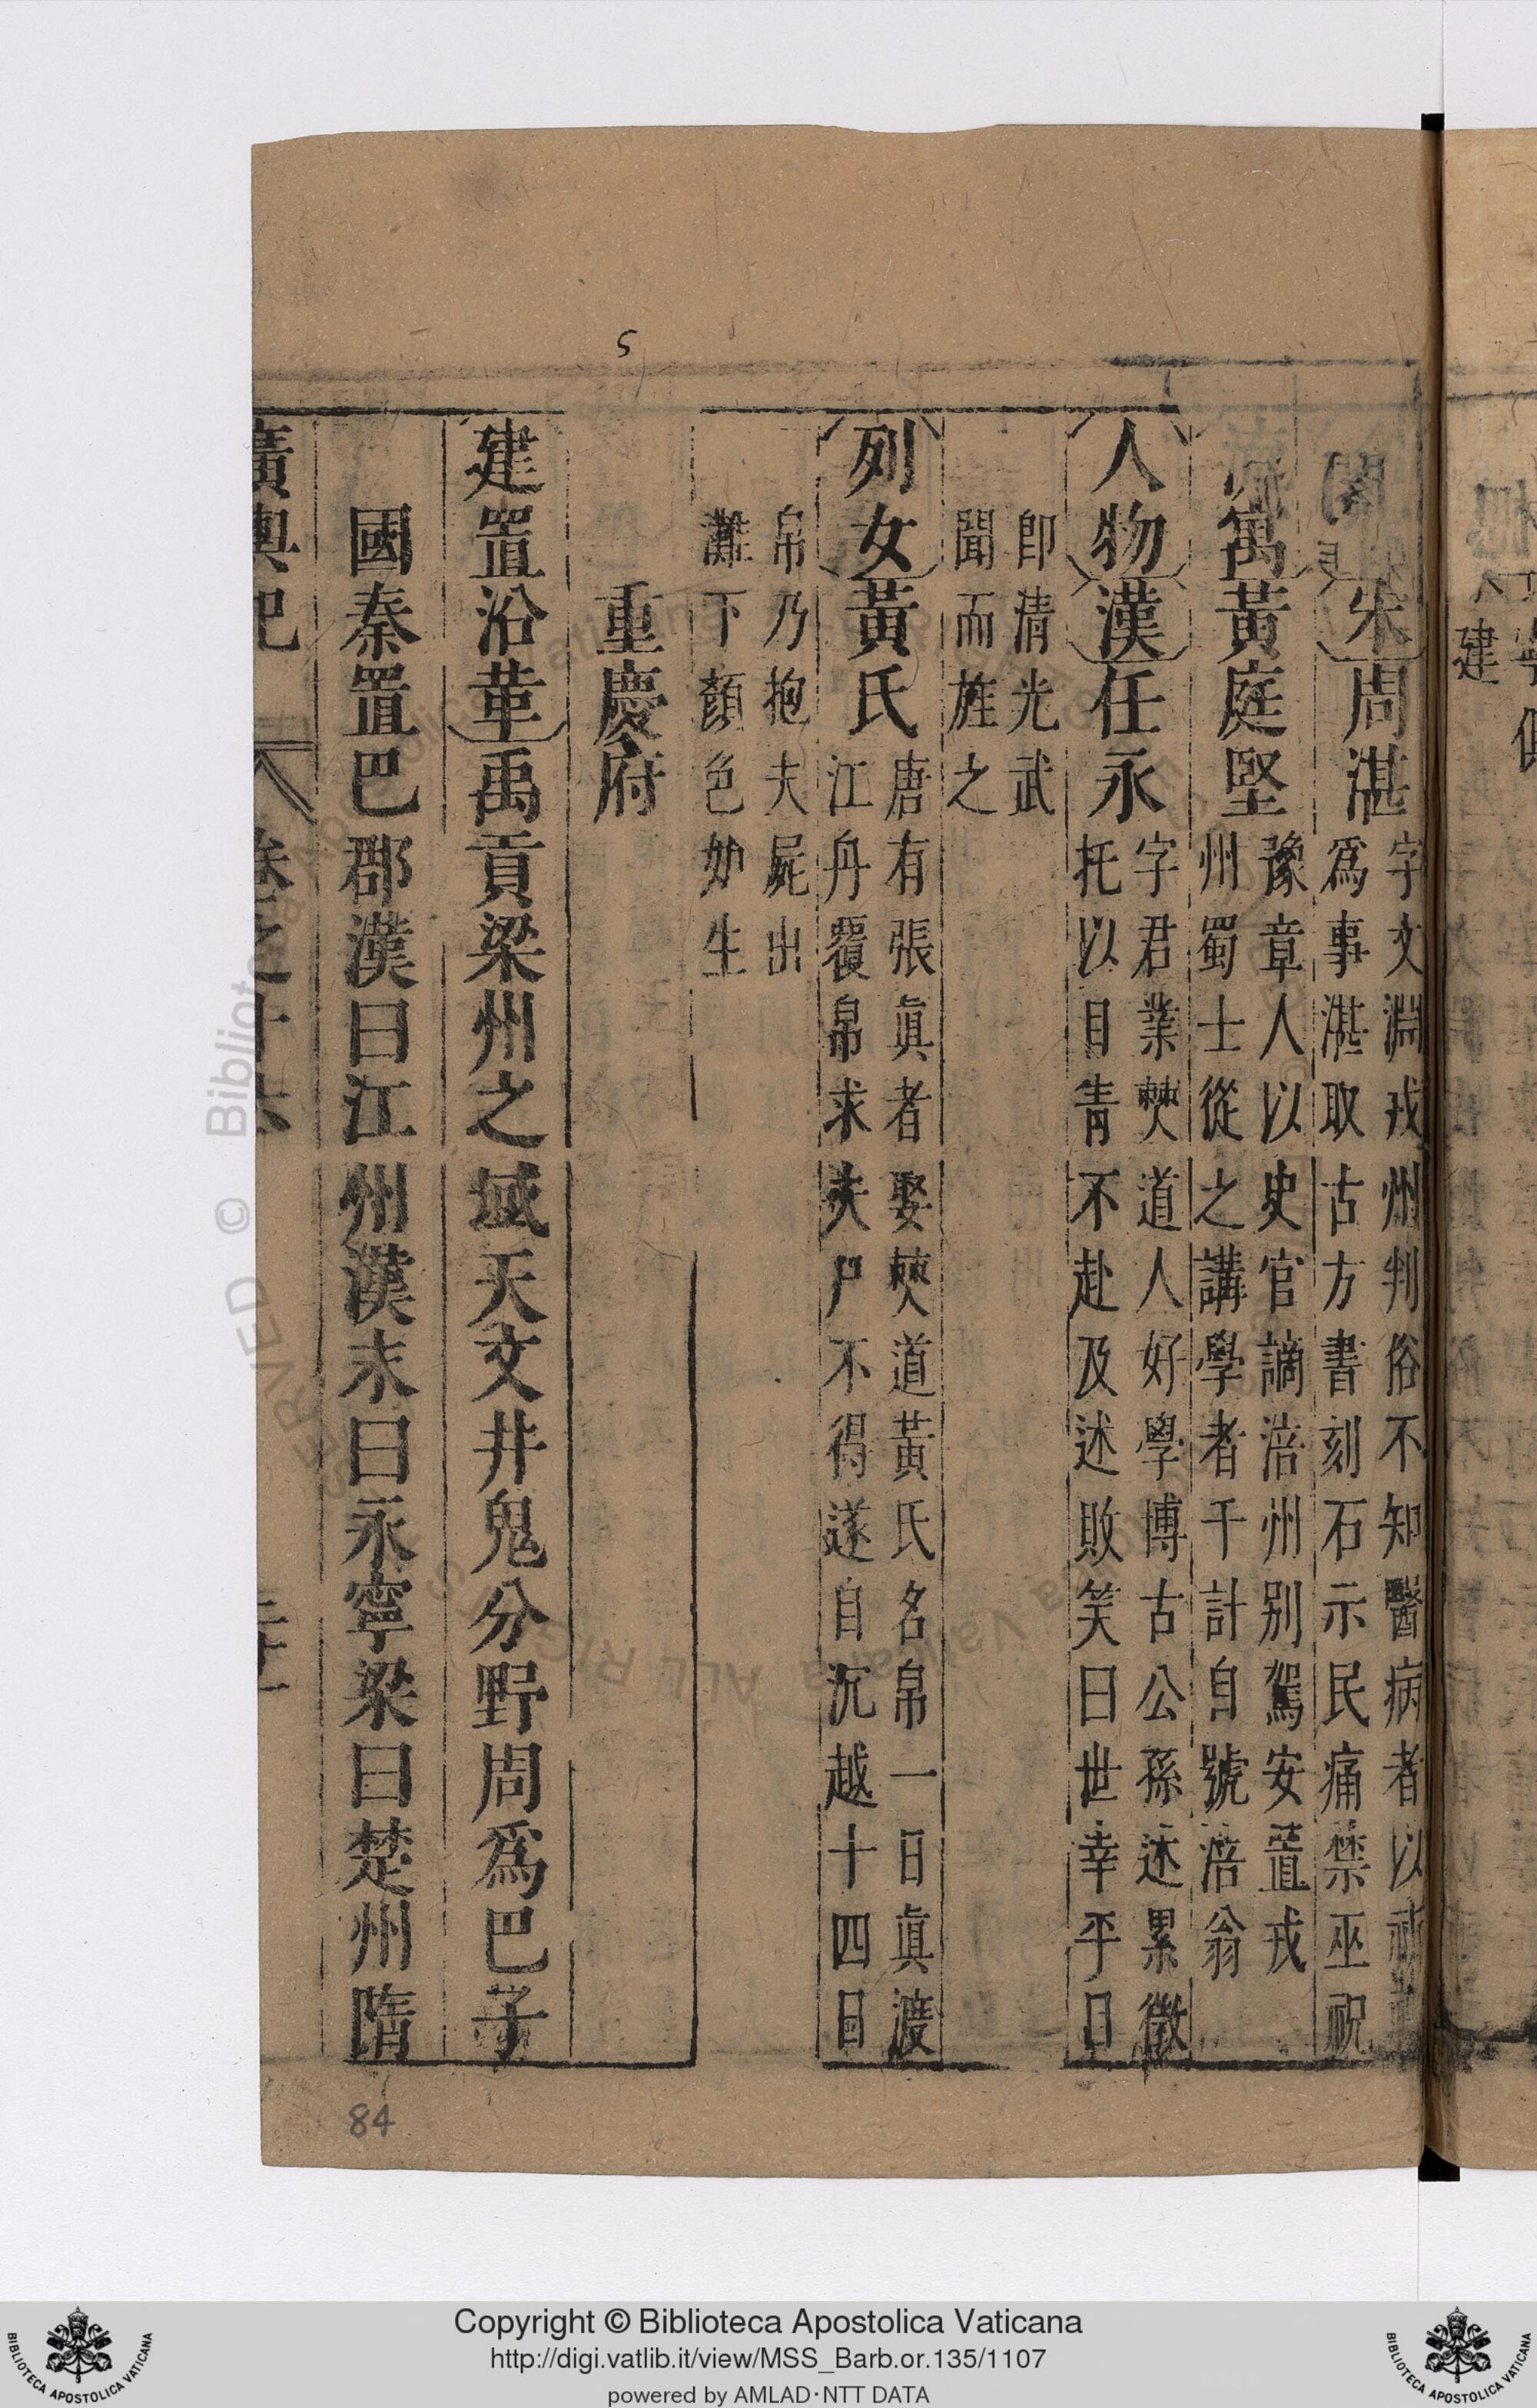 宋周湛字文淵戎州判俗不知醫病者以
爲事湛取古方書刻石示民痛禁巫祝
寓黃庭堅豫章人以史官謫涪州別駕安置戎
州蜀士從之講學者千計自號涪翁
人物漢任永字君業僰道人好學博古公孫述累徵
托以目青不赴及述敗笑曰世幸平目
即清光武
聞而旌之
列女黃氏唐有張眞者娶僰道黃氏名帛一日眞渡
江丹覆帛求夫尸不得遂自沉越十四日
帛乃抱夫屍出
灘下顏色如生
重慶府
建置沿革禹貢梁州之域天文井鬼分野周爲巴子
國秦置巴郡漢曰江州漢末曰永寧梁曰楚州隋
廣輿記 卷之十六
5
84
建
Copyright © Biblioteca Apostolica Vaticana
http://digi.vatlib.it/view/MSS_Barb.or.135/1107
powered by AMLAD·NTT DATA
BIBLIOTECA APOSTOLICA VATICANA
BIBLIOTECA APOSTOLICA VATICANA